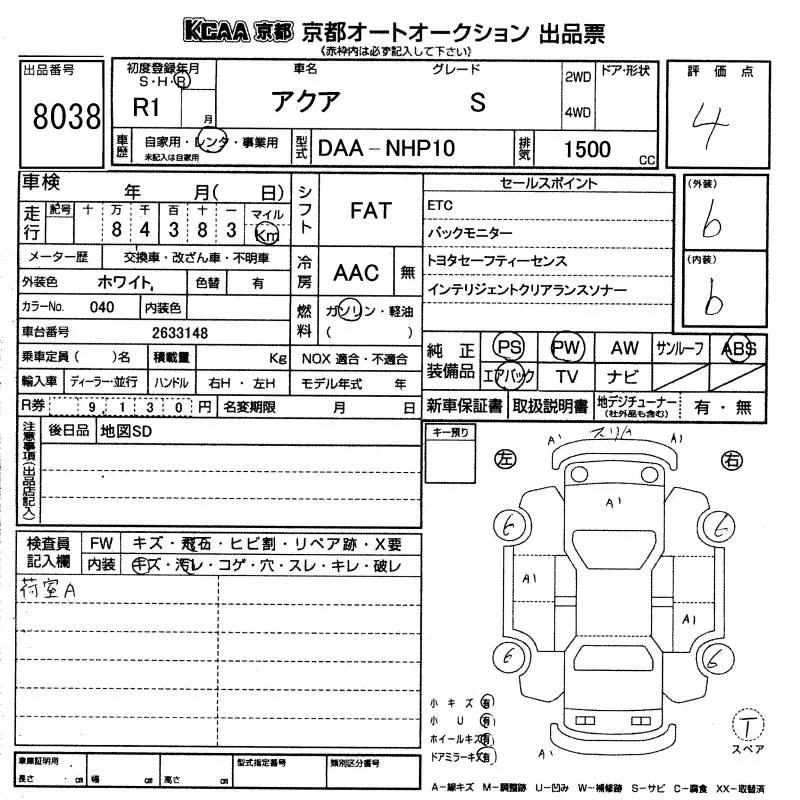 KCAA 京都 京都オートオークション 出品票
《赤枠内は必ず記入して下さい》
出品番号
8038
初度登録年月
S・H・R
R1 月
車名
アクア
グレード
S
2WD
4WD
ドア・形状
評価点
4
車歴
自家用・レンタ・事業用
未記入は自家用
型式
DAA-NHP10
排気
1500 CC
車検 年 月( 日)
走行
記号 十 万 千 百 十 一 マイル
8 4 3 8 3 Km
メーター歴 交換車・改ざん車・不明車
外装色 ホワイト, 色替 有
カラーNo. 040 内装色
車台番号 2633148
乗車定員( )名 積載量 Kg NOX 適合・不適合
輸入車 ディーラー・並行 ハンドル 右H・左H モデル年式 年
R券 9,130 円 名変期限 月 日
シフト FAT
冷房 AAC 無
燃料 ガソリン・軽油
( )
セールスポイント
ETC
バックモニター
トヨタセーフティーセンス
インテリジェントクリアランスソナー
(外装)
6
(内装)
6
純正装備品
PS PW AW サンルーフ ABS
エアバック TV ナビ
新車保証書 取扱説明書 地デジチューナー
(社外品も含む) 有・無
注意事項(出品店記入)
後日品 地図SD
キー預り
検査員記入欄
FW キズ・飛石・ヒビ割・リペア跡・X要
内装 キズ・汚レ・コゲ・穴・スレ・キレ・破レ
荷室A
A1 スリA A1
左 右
A1
6 6
A1
A1
6 6
A1
小キズ 有
小U 有
ホイールキズ 有
ドアミラーキズ 有
T
スペア
車庫証明用
長さ ・ cm 幅 cm 高さ cm
型式指定番号
類別区分番号
A-線キズ M-調整跡 U-凹み W-補修跡 S-サビ C-腐食 XX-取替済